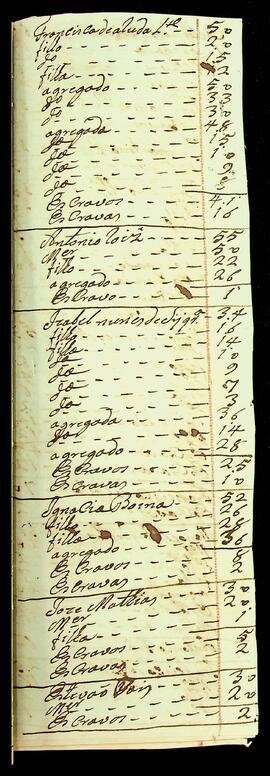 Francisco de aluda L.te 50
fiio 20
Do 15
filla 2
agregado 55
Do 33
Do 30
agregada 45
Da 15
Da 10
Da 9
Da
Escravos 41
Escravas 16
Antonio Roiz 55
Mer 50
fillo 22
agregado 26
Escravo 1
Izabel nunes de Siqr.a 34
fillo 16
filla 14
Da 10
Da 9
Da 7
Da 3
agregada 36
Do 14
agregado 28
Escravos 25
Escravas 10
Ignacia Boena 52
fillo 26
filla 28
agregado 36
Escravos 8
Escravas 2
Joze Mathias 30
Mer 20
filla 1
Escravos 5
Escravas 2
Estevão 30
Mer 20
Escravos 2